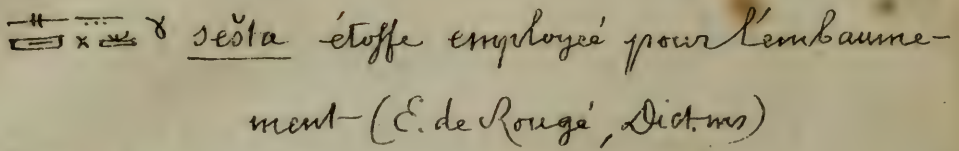 sešta étoffe employée pour l'embaume-
ment (E. de Rougé, Dict. ms)